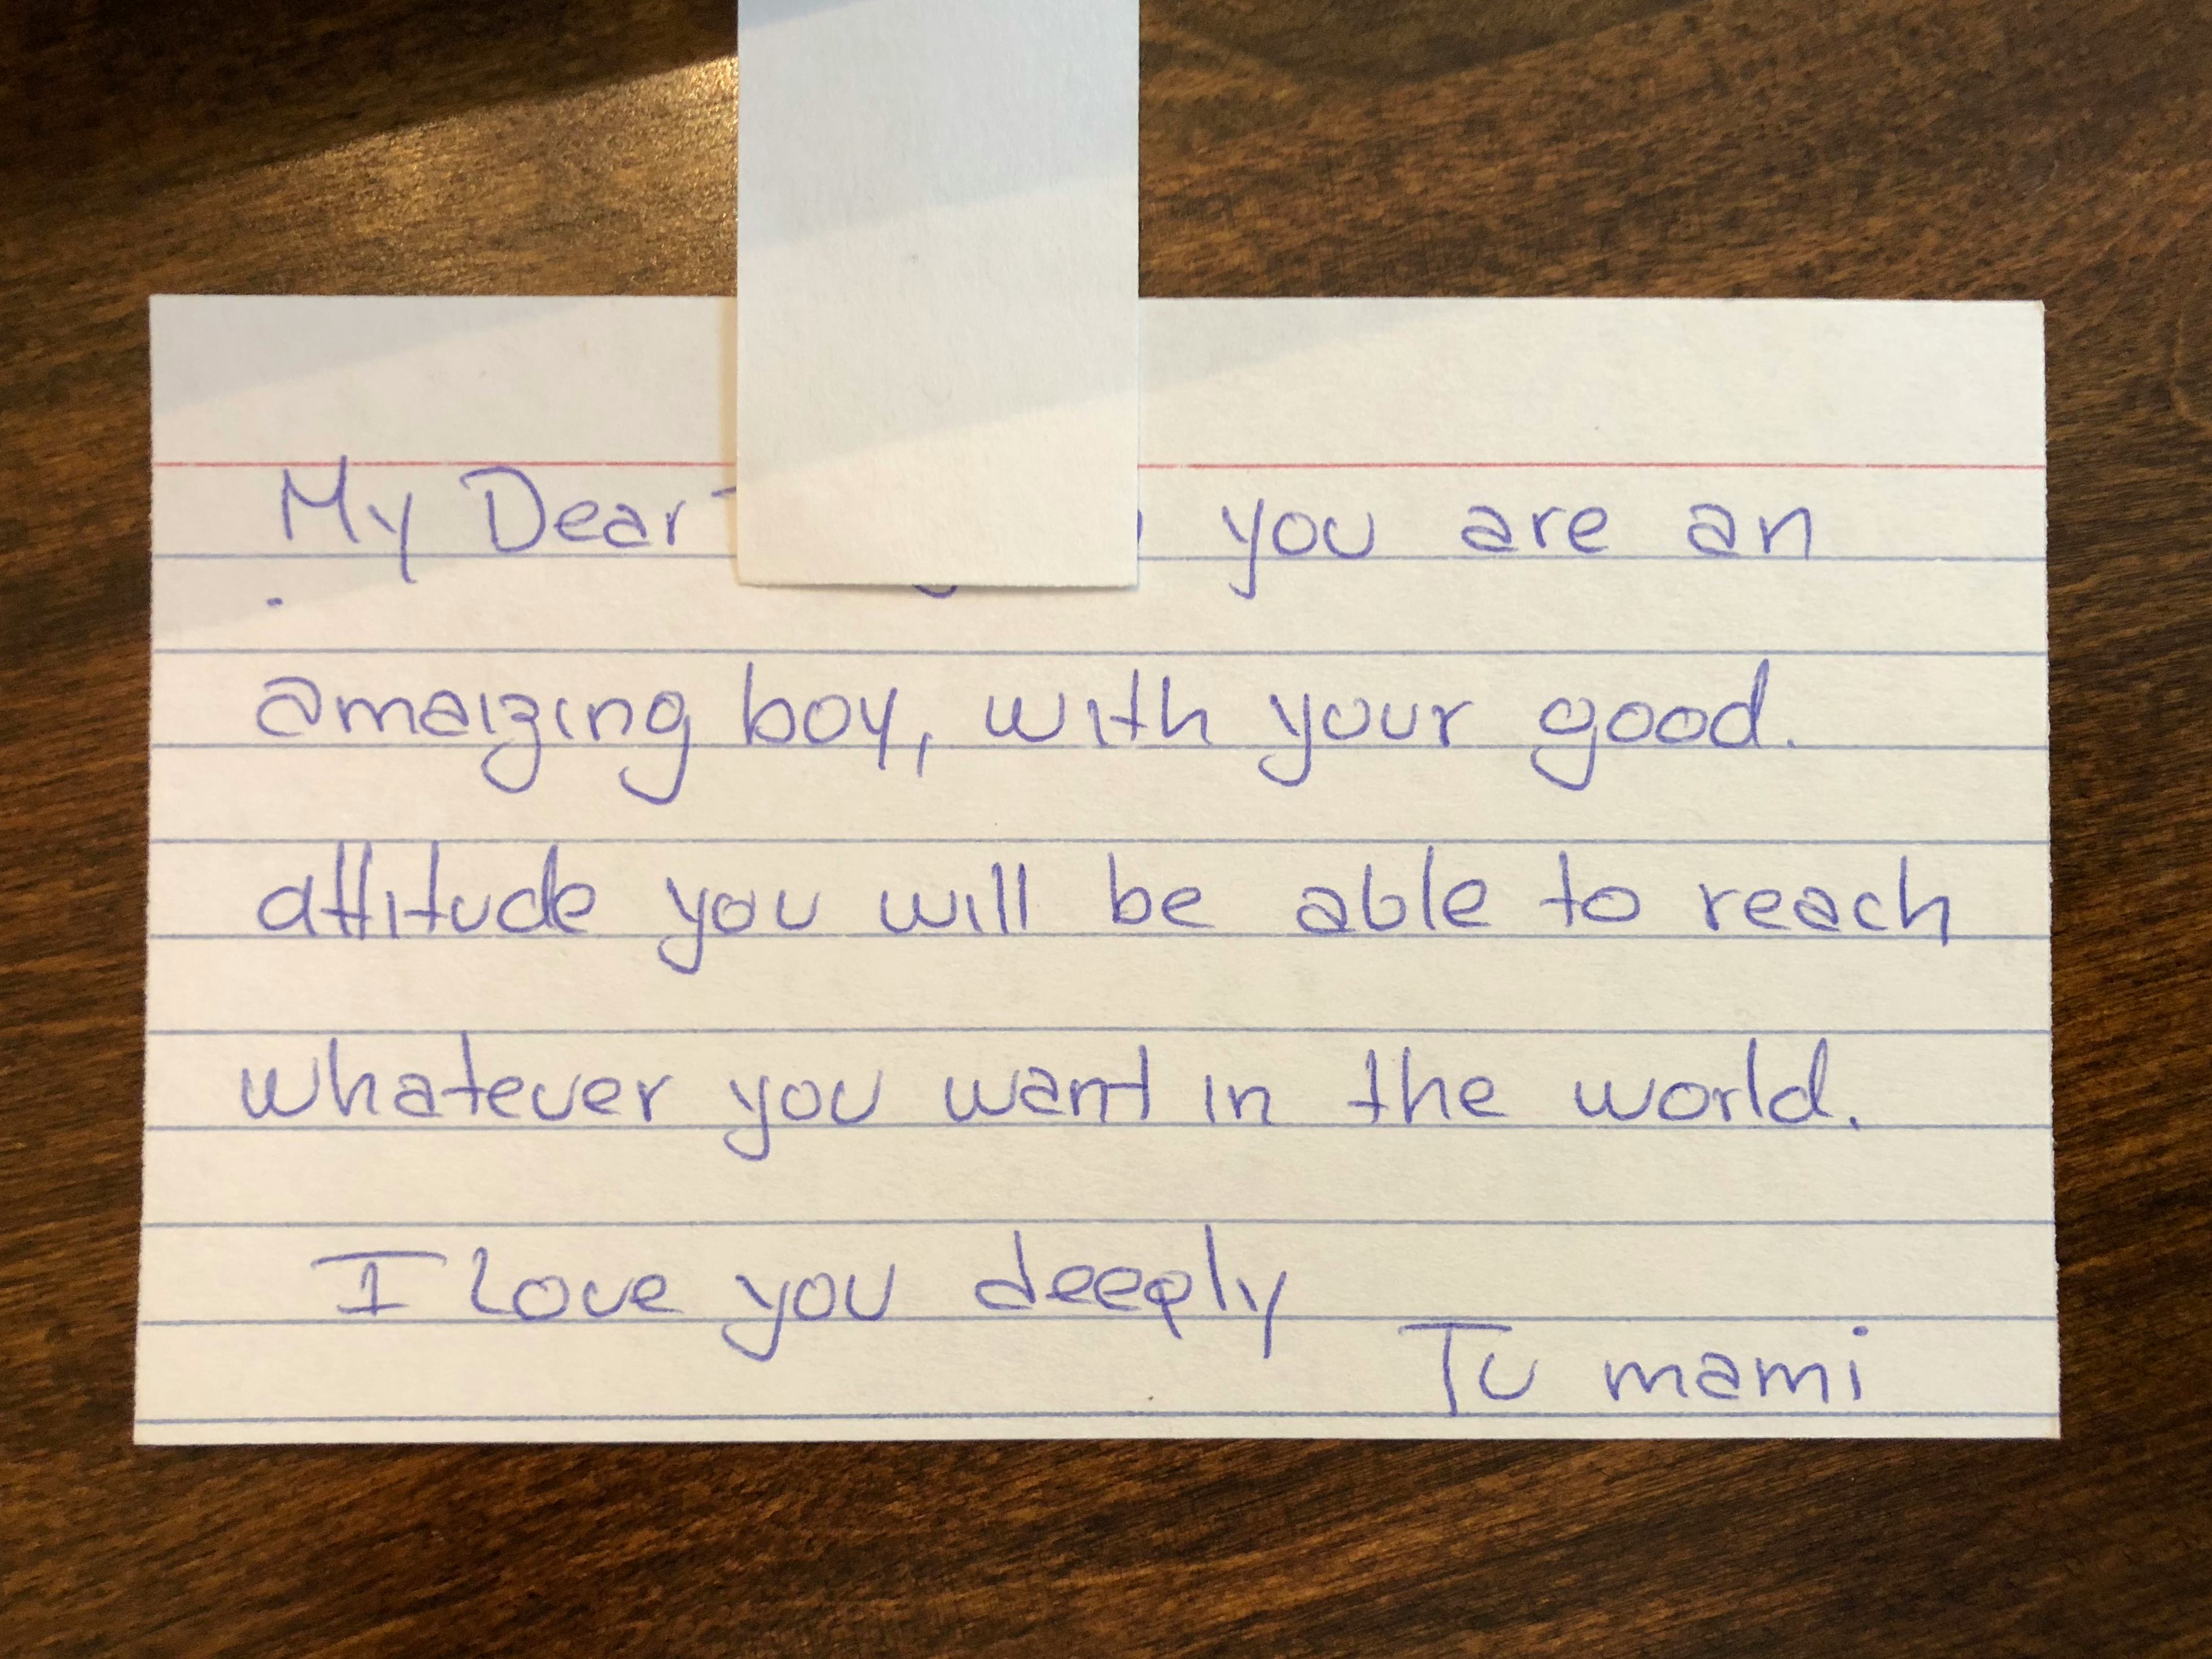 My Dear you are an
amaizing boy, with your good.
attitude you will be able to reach
whatever you want in the world.
I love you deeply
Tu mami